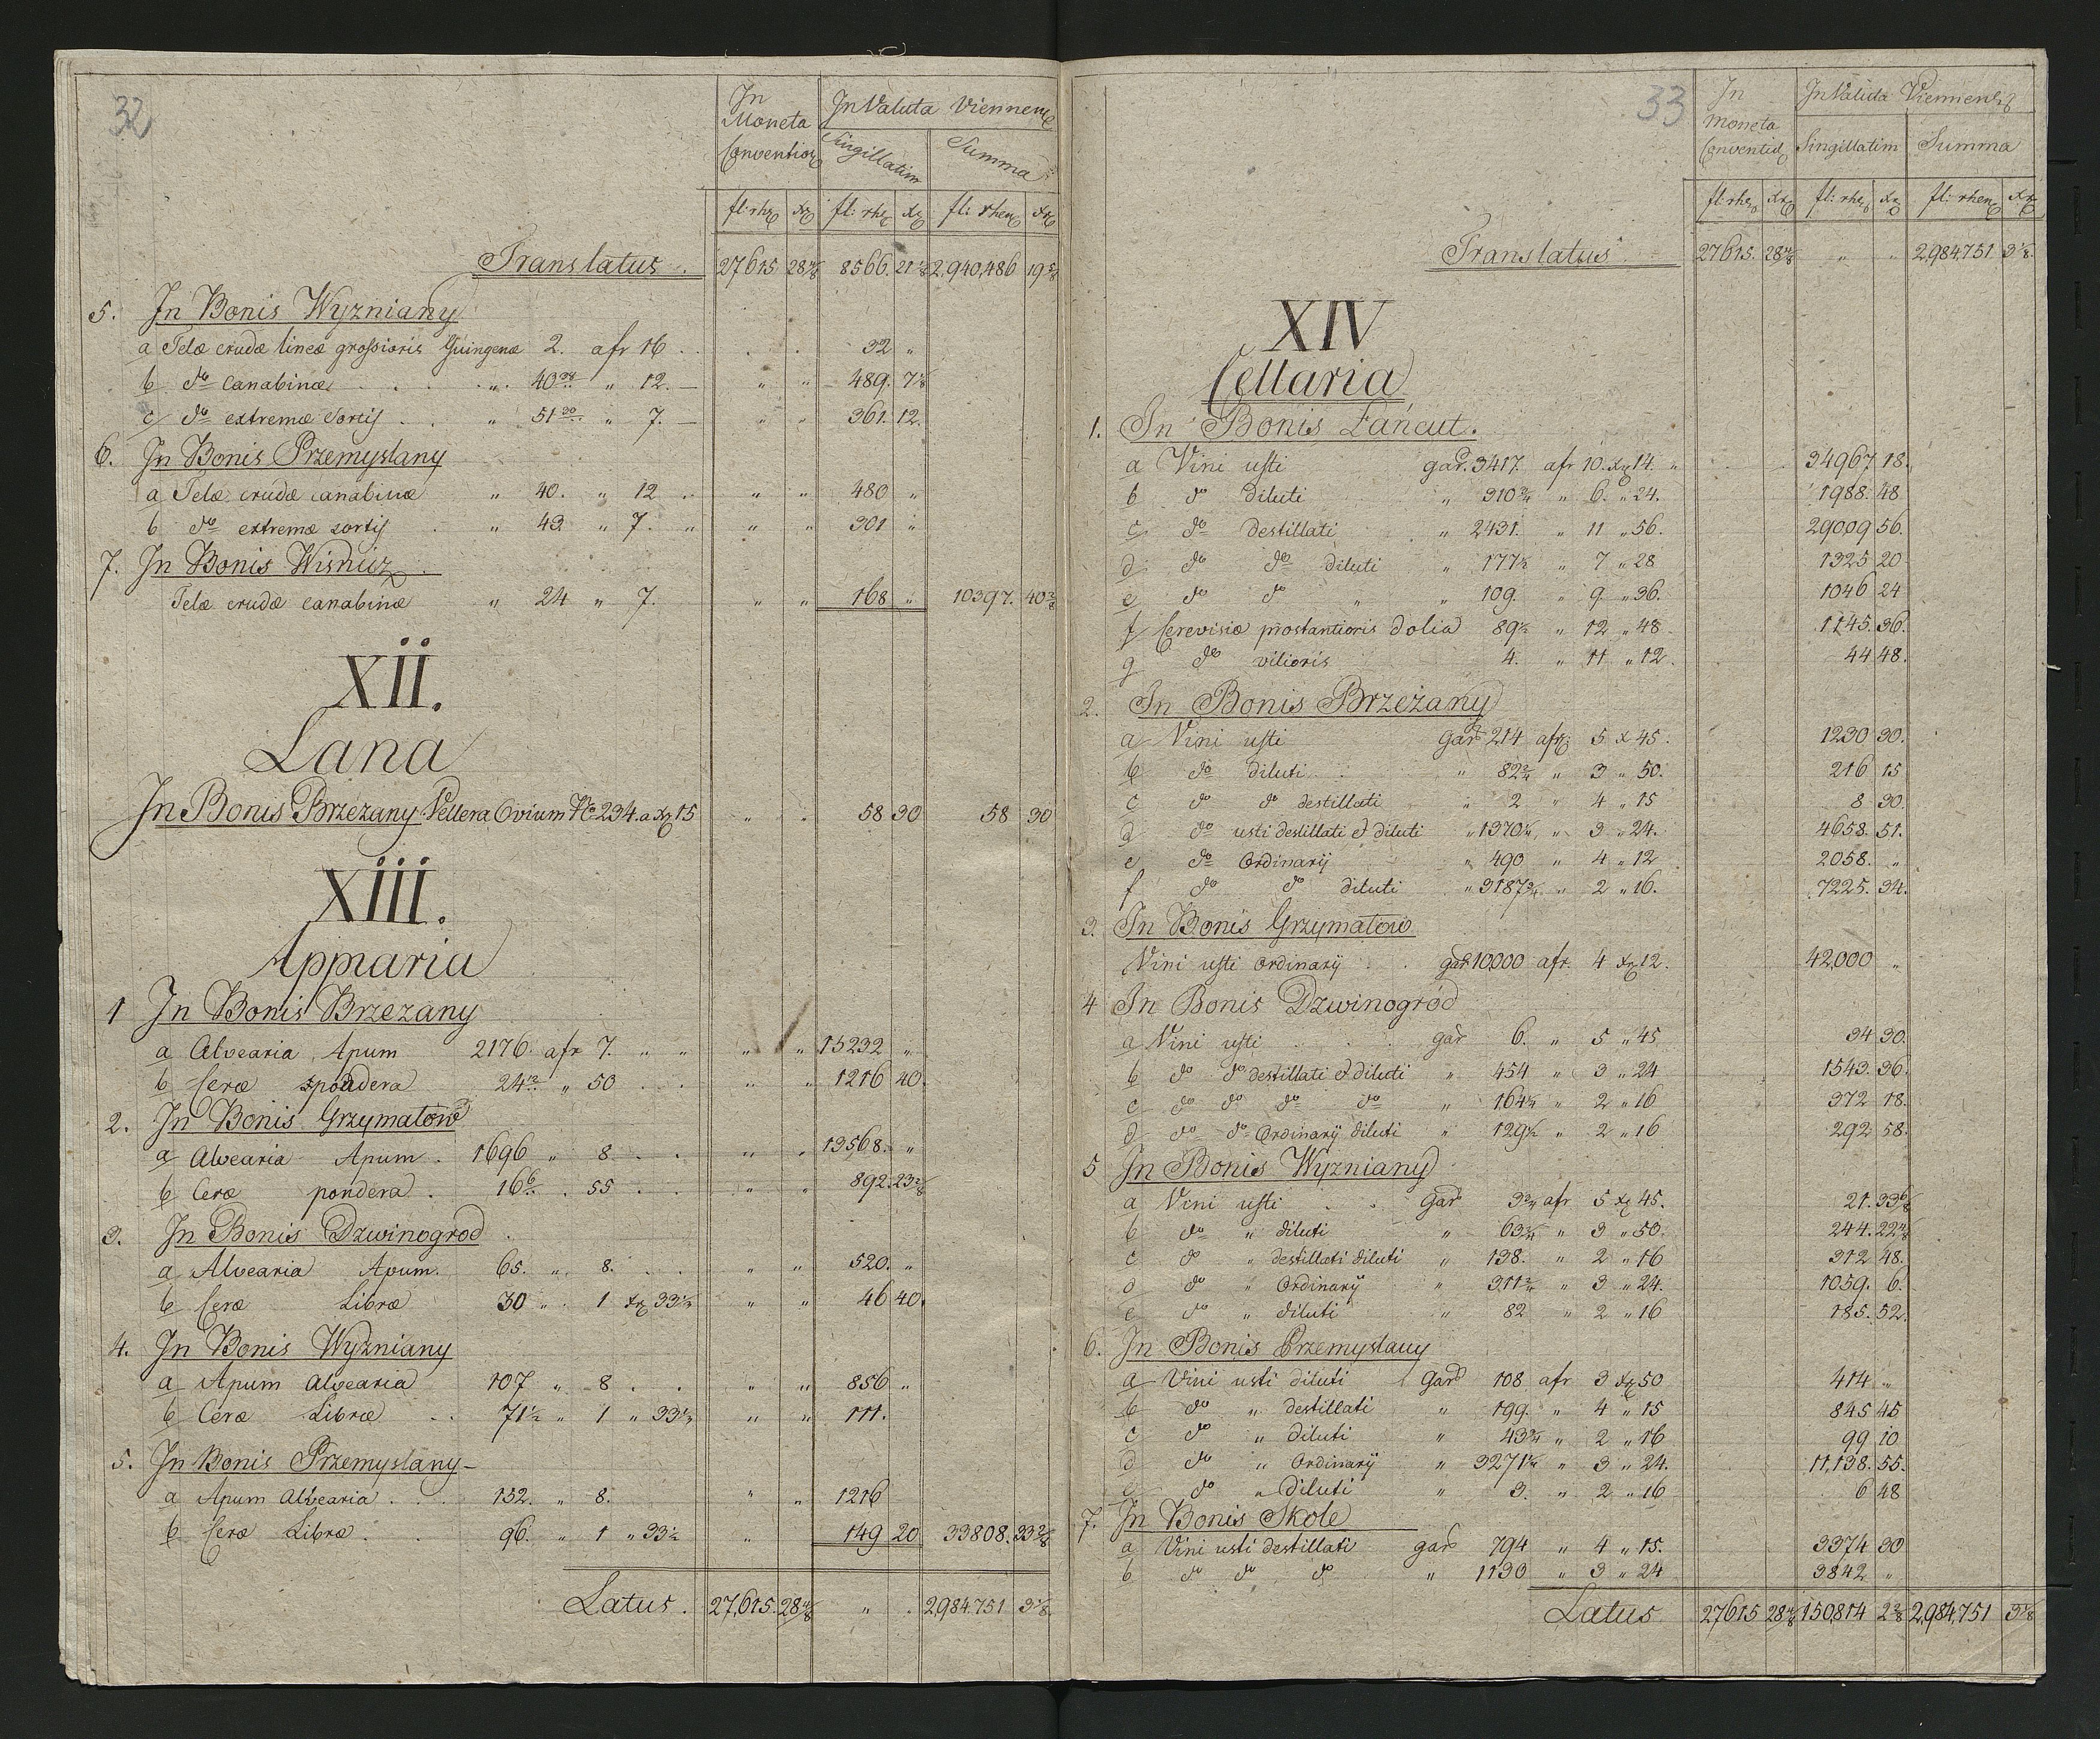 32
In Moneta Convention
In Valuta Viennens
Singillatim
Summa
fl: rhe xr fl: rhe xr fl: rhen xr
Translatus . 27615. 28 4/8 8566. 21 1/8 2,940,486 19 5/8
5. In Bonis Wyzniany
a Telæ crudæ lineæ grossioris Guingenæ 2. a fr 16 . . . . 32 "
b do canabinæ . . . . " 40 38 " 12. — " " 489. 7 4/8
c do extremæ sortis . . " 51 30 " 7. — " " 361. 12.
6. In Bonis Przemyslany
a Telæ crudæ canabinæ " 40. " 12 . " " 480 "
b do extremæ sortis . " 43 " 7. " " " 301 "
7. In Bonis Wisnicz
Telæ crudæ canabinæ " 24 " 7. " " 168 " 10397. 40 3/8
XII.
Lana
In Bonis Brzezany Vellera Ovium No 234. a xr 15 " . 58 30 58 30
XIII.
Appiaria
1 In Bonis Brzezany
a Alvearia Apum 2176. a fr 7. " " " " 15232 "
b Ceræ pondera 24 12 " 50 . . " " 1216 40.
2. In Bonis Grzymałow
a Alvearia Apum . 1696 " 8. . . " " 13568. "
b Ceræ pondera . 16 6 . 55 . . " " 892. 23 2/8
3. In Bonis Dzwinogrod
a Alvearia Apum. 65. " 8. . . " " 520. "
b Ceræ Libræ 30 " . 1 xr 33 1/2 " " 46 40.
4. In Bonis Wyzniany
a Apum Alvearia 107 " 8 . . " " 856 "
b Ceræ Libræ . . 71 1/2 " 1 " 33 1/2 " " 111.
5. In Bonis Przemyslany —
a Apum Alvearia . . . 152. " 8. " " 1216
b Ceræ Libræ . . 96. " 1 " 33 1/2 " 149 20 33808. 33 2/8
Latus . 27,615. 28 4/8 " . 2,984,751 3 1/8
33
In moneta Convent
In Valuta Viennensi
Singillatim
Summa
fl: rhe xr fl: rhe xr fl: rhen xr
Translatus . 27615. 28 4/8 " " 2,984,751 3 1/8.
XIV
Cellaria
1. In Bonis Łańcut.
a Vini usti gar. 3417. a fr 10. xr 14. " . . 34967 18.
b do diluti " 310 3/4 " 6. " 24. 1988. 48
c do destillati . " 2431. " 11 " 56. 29009 56.
d do do diluti " 177 1/2 " 7 " 28 1325 20
e do do " " 109. " 9. " 36. 1046 24
f Cerevisiæ præstantioris dolia 89 1/2 " 12 " 48 . 1145. 36.
g do vilioris 4. " 11 " 12. 44 48.
2. In Bonis Brzeżany
a Vini usti gar 214 a fr 5 x 45. 1230 30.
b do diluti . . " 82 2/4 " 3 " 50. 216 15
c do do destillati " 2 " 4 " 15 8 30.
d do usti destillati et diluti " 1370 1/4 " 3 " 24. 4658. 51.
e do Ordinarij " 490 " 4 " 12 2058. "
f do do diluti . " 3187 3/4 " 2 " 16. 7225. 34.
3. In Bonis Grzymałow
Vini usti Ordinarij . . gar 10000 a fr. 4 xr 12. 42,000 "
4 In Bonis Dzwinogród
a Vini usti . . . gar 6. " 5 " 45 34 30.
b do do destillati et diluti " 454 " 3 " 24 1543. 36.
c do do do do " 164 1/4 " 2 " 16 372 18.
d do do Ordinarij diluti " 129 1/4 " 2 " 16 292 58.
5 In Bonis Wyzniany
a Vini usti . . Gar 3 3/4 a fr 5 xr 45. 21. 33 6/8
b do " diluti " 63 3/4 " 3 " 50. 244. 22 4/8
c do " destillati diluti " 138. " 2 " 16 312 48.
d do " Ordinarij " 311 2/4 " 3 " 24. 1059. 6.
e do " diluti " 82 " 2 " 16 185. 52.
6. In Bonis Przemyslany
a Vini usti diluti Gar 108 a fr 3 xr 50 414 "
b do " destillati " 199. " 4 " 15 845 45
c do " diluti " 43 3/4 " 2 " 16 99 10
d do " Ordinarij " 3271 1/4 " 3 " 24. 11,138. 55.
e do " diluti " 3. " 2 " 16 6 48
7. In Bonis Skole
a Vini usti destillati gar 794 " 4 " 15. 3374 30
b do do do " 1130 " 3 " 24 3842 "
Latus 27615 28 4/8 150,814 2 2/8 2,984,751 3 1/8